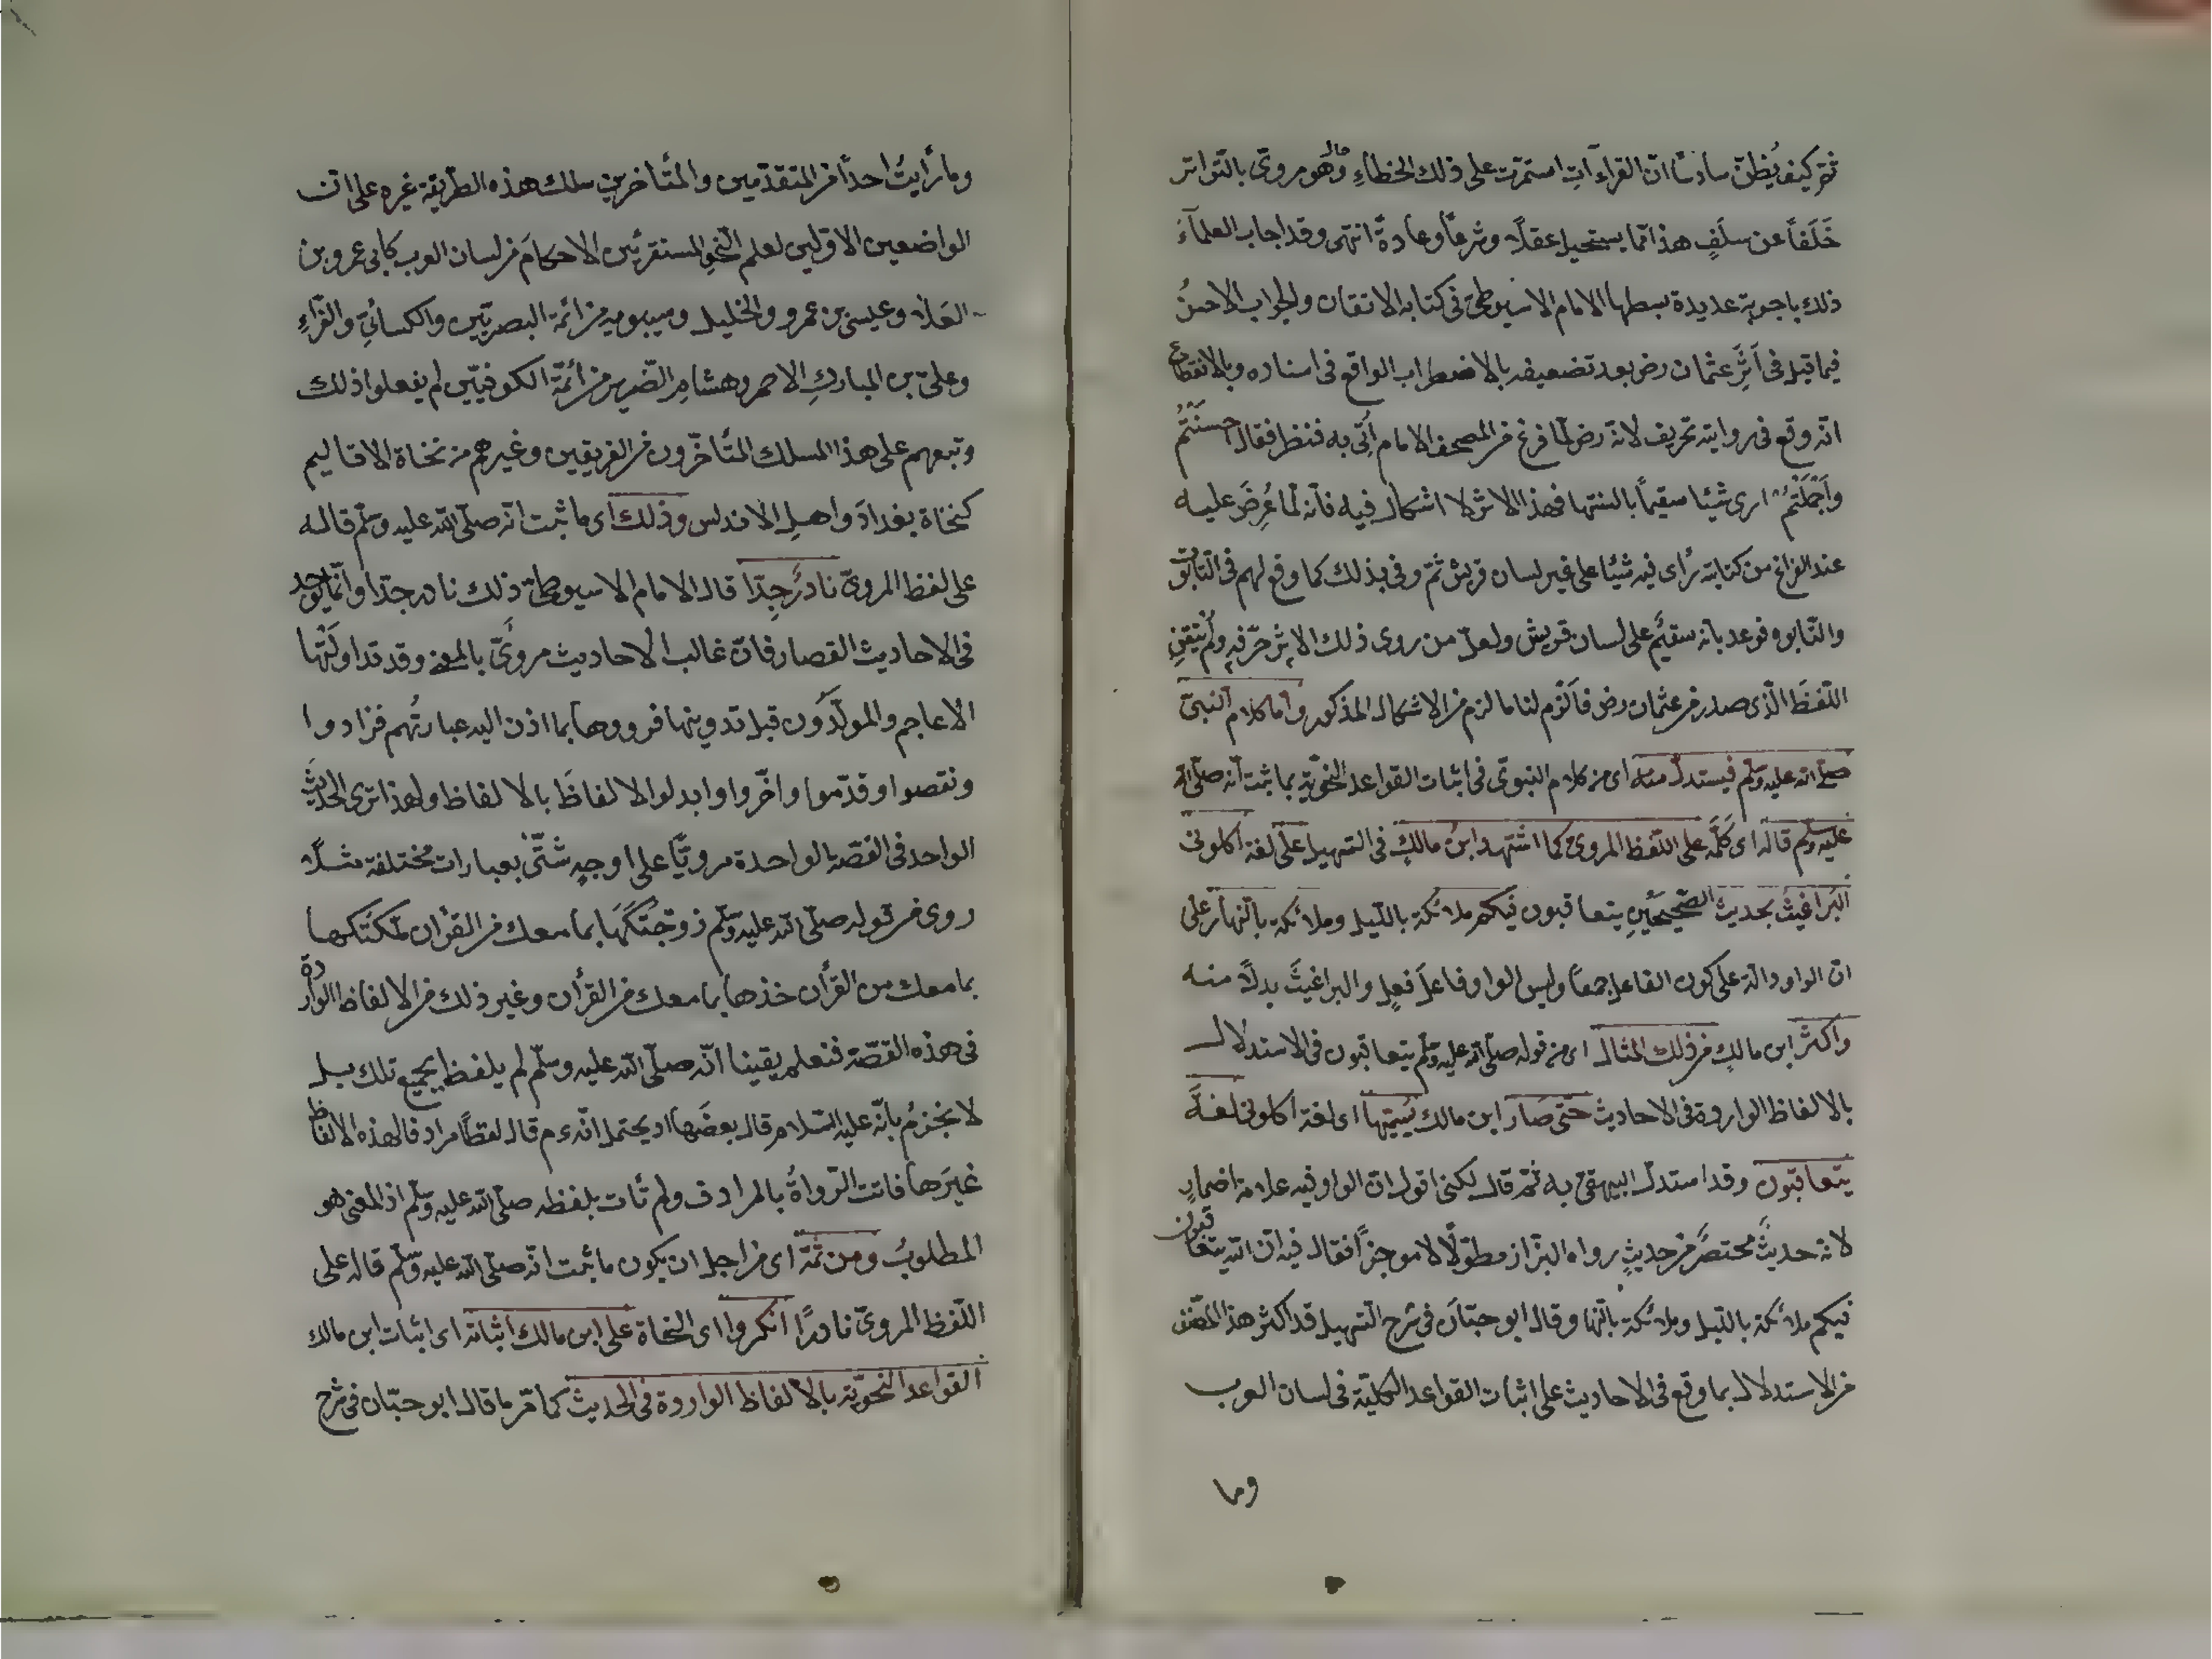 ثم كيف يُظنّ سادسًا انّ القراءآتِ استمرّت على ذلك الخطاءِ وهو مروىّ بالتّواتر
خَلَفاً عن سلَفٍ هذا ممّا يستحيل عقلًا وشرعًا وعادةً انتهى وقد اجاب العلمآءُ
ذلك باجوبة عديدة بسطها الامام الاسيوطىّ فى كتابه الاتقان والجواب الاحسنُ
فيما قيل فى اَثَرِ عثمان رض بعد تضعيفه بالاضطراب الواقع فى اسناده وبالانقطاع
انّه وقع فى روايته تحريف لانّه رض لمّا فرغ من المصحف الامام اُتِى به فنظر فقال احسنْتُم
واَجْمَلتُم ارى شيئا سقيماً بالسنتها فهذا الاثر لا اشكال فيه فانّه لمّا عُرِضَ عليه
عند الفراغ من كتابته رأى فيه شيئا على غير لسان قريش ثمّ وفى بذلك كما وقع لهم فى التّابوت
والتّابوه فوعد بانه سقيُم على لسان قريش ولعلّ من روى ذلك الاثر حرّفه ولم يُتقِنِ
اللّفظَ الّذى صدر من عثمان رض فاَلزم لنا ما لزم من الاشكال المذكور وامّا كلام النّبىّ
صلّى الله عليه وسلّم فيستدلّ منه اى من كلام النّبوىّ فى اثبات القواعد النحويّة بما ثبت انّه صلّى الله
عليه وسلّم قاله اى كَلَّمَه على اللّفظ المروىّ كما استشهد ابنُ مالكٍ فى التسهيل على لغة اكلونى
البَراغيثُ بحديث الصّحيحَيْنِ يتعاقبون فيكم ملائكة باللّيل وملائكة بالنّهار على
انّ الواو دالّة على كون الفاعل جمعًا وليس الواو فاعلَ فعلٍ والبراغيثَ بدلًا منه
واكثرَ ابن مالكٍ من ذلك المثال اى من قوله صلّى الله عليه وسلّم يتعاقبون فى الاستدلال
بالالفاظ الواردة فى الاحاديث حتّى صَارَ ابن مالك يُسَمّيها اى لغة اكلونى لغةَ
يتعاقبون وقد استدلّ البيهقىّ به ثمّ قال لكنى اقول انّ الواو فيه علامة اضمارٍ
لانّه حديثٌ مختصَرٌ من حديثٍ رواه البزّاز مطوّلًا لا موجزًا فقال فيه انّ لله يتعاقبون
فيكم ملائكة باللّيل وملائكة بالنّهار وقال ابو حيّانَ فى شرح التّسهيل قد اكثر هذا المصّنف
من الاستدلال بما وقع فى الاحاديث على اثبات القواعد الكليّة فى لسان العرب
وما
وما رأيتُ احداً من المتقدّمين والمتأخرين سلك هذه الطّريقة غيره على انّ
الواضعين الاوّلين لعلم النّحوِ المستقرئين الاحكامَ من لسان العرب كابى عمرو بن
العَلا وعيسى بن عمرو والخليل وسيبويه من ائمّة البصريّين والكسائىّ والفرّاءِ
وعلىّ بن المباركِ الاحمر وهشامِ الضّرير من ائمّة الكوفيّين لم يفعلوا ذلك
وتبعهم على هذا المسلك المتأخّرون من الفريقين وغيرهم من نحاة الاقاليم
كنحاة بغدادَ واهلِ الاندلس وذلك اى ما ثبت انّه صلّى الله عليه وسلّم قاله
على لفظ المروىّ نادرٌ جدّا قال الامام الاسيوطىّ ذلك نادر جدّا وانّما يوجد
فى الاحاديث القصار فانّ غالب الاحاديث مروىٌّ بالمعنى وقد تداولَتْها
الاعاجم والمولّدُون قبل تدوينها فرووها بما اذن اليه عبارتُهم فزادوا
ونقصوا وقدّموا واخّروا وابدلوا الالفاظَ بالالفاظ ولهذا ترى الحديثَ
الواحد فى القصّة الواحدة مرويًّا على اوجهٍ شتّى بعبارات مختلفة مثلًا
روى من قوله صلّى الله عليه وسلّم زوّجْتُكَهَا بما معك من القرأن ملّكتُكها
بما معك من القرأن خذها بما معك من القرأن وغير ذلك من الالفاظ الواردة
فى هذه القصّة فنعلم يقينا انّه صلّى الله عليه وسلّم لم يلفظ بجميع تلك بل
لا نجزمُ بانّه عليه السّلام قال بعضَها اذ يحتمل انّه عم قال لفظاً مرادفا لهذه الالفاظ
غيرَها فاتت الرّواةُ بالمرادف ولم تأت بلفظه صلّى الله عليه وسلّم اذ المعنى هو
المطلوبُ ومن ثَمّة اى من اجل ان يكون ما ثبت انّه صلّى الله عليه وسلّم قاله على
اللّفظ المروىّ نادرًا انكروا اى النحاة على ابن مالك اثباتَه اى اثبات ابن مالك
القواعدَ النّحويّة بالالفاظ الواردة فى الحديث كما مرّ ما قال ابو حيّان فى شرح